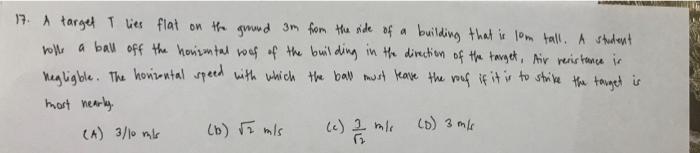 17. A target T lies flat on the ground 3m from the side of a building that is 10m tall. A student
rolls a ball off the horizontal roof of the building in the direction of the target, Air resistance is
negligble. The horizontal speed with which the ball must leave the roof if it is to strike the target is
most nearly.
(A) 3/10 m/s (b) √2 m/s (c) 3/√2 m/s (D) 3 m/s